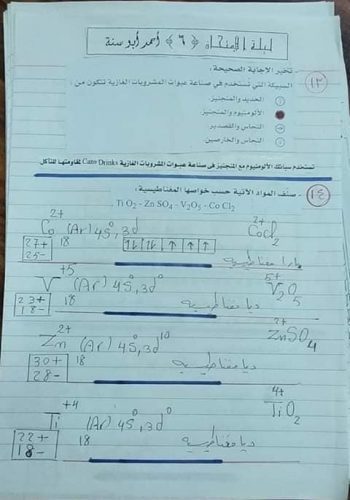 ليلة الإمتحان ﴿٦﴾ أحمد أبو سنة
١٣ - تخير الإجابة الصحيحة :
السبيكة التي تُستخدم في صناعة عبوات المشروبات الغازية تتكون من .
الحديد والمنجنيز
الألومنيوم والمنجنيز
النحاس والقصدير
النحاس والخارصين
تستخدم سبائك الألومنيوم مع المنجنيز فى صناعة عبوات المشروبات الغازية Cans Drinks لمقاومتها للتآكل
١٤ - صنف المواد الآتية حسب خواصها المغناطيسية :
Ti O2 - Zn SO4 - V2O5 - Co Cl2
Co2+ (Ar)18 4S0, 3d ↑↓ ↑↓ ↑ ↑ ↑ CoCl2 2+
27+ 25-
بارا مغناطيسية
V+5 (Ar)18 4S0, 3d0 V2O5 5+
23+ 18-
ديا مغناطيسية
Zn2+ (Ar)18 4S0, 3d10 ZnSO4 2+
30+ 28-
ديا مغناطيسية
Ti+4 (Ar)18 4S0, 3d0 TiO2 4+
22+ 18-
ديا مغناطيسية